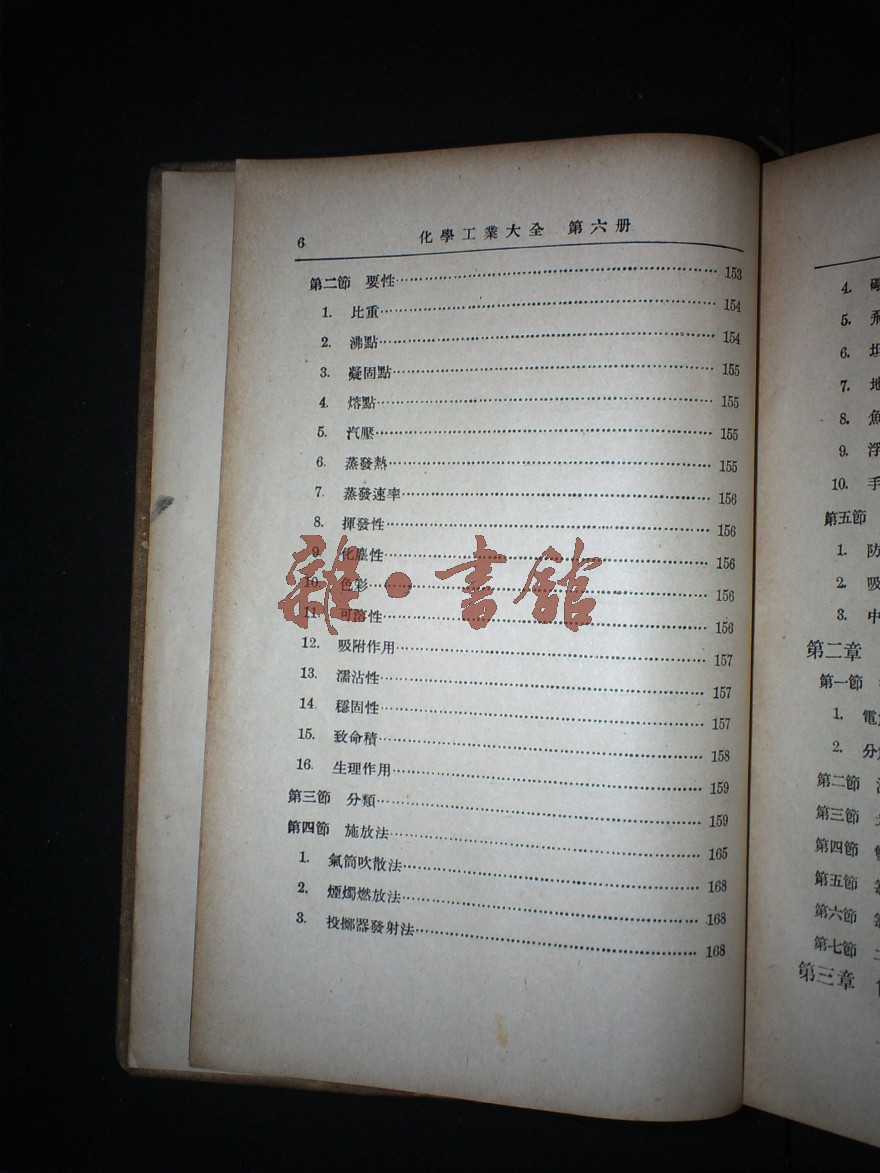 6 化學工業大全 第六册
第二節 要性 153
1. 比重 154
2. 沸點 154
3. 凝固點 155
4. 熔點 155
5. 汽壓 155
6. 蒸發熱 155
7. 蒸發速率 156
8. 揮發性 156
9. 化塵性 156
10. 色彩 156
11. 可溶性 156
12. 吸附作用 157
13. 濡沾性 157
14. 穩固性 157
15. 致命積 158
16. 生理作用 159
第三節 分類 159
第四節 施放法 165
1. 氣筒吹散法 168
2. 煙燭燃放法 168
3. 投擲器發射法 168
雜·書館
4.
5.
6. 坦
7. 地
8. 魚
9. 浮
10. 手
第五節
1. 防
2. 吸
3. 中
第二章
第一節
1. 電
2. 分
第二節
第三節
第四節
第五節
第六節
第七節
第三章